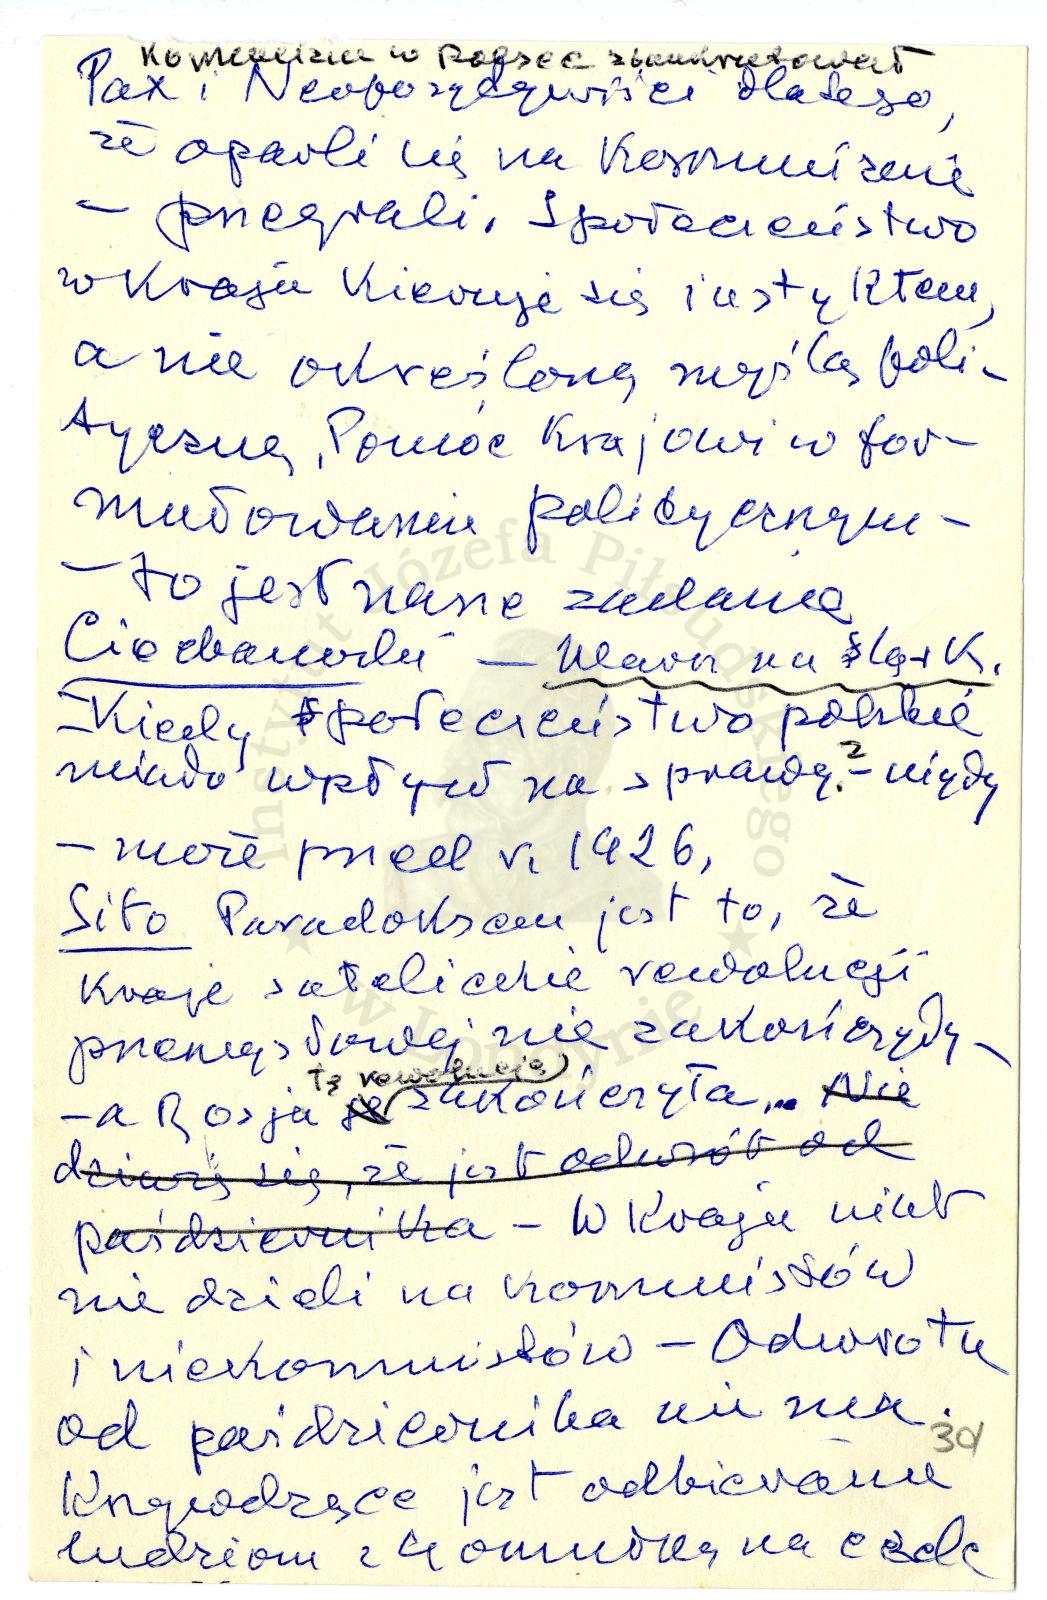 Komunizm w Polsce zbankrutował
Pax i Neopozytywiści dlatego,
że oparli się na Komunizmie
– przegrali. Społeczeństwo
w Kraju kieruje się instynktem,
a nie określoną myślą poli-
tyczną, Pomóc Krajowi w for-
mułowaniu politycznym –
– to jest nasze zadanie
Ciechanowski – na Śląsk.
– Kiedy społeczeństwo polskie
miało wpływ na sprawy? – nigdy
– może przed r. 1926,
Sito Paradoksem jest to, że
Kraje satelickie rewolucji
przemysłowej nie zakończyły –
tę rewolucję
– a Rosja ją zakończyła... Nie
dziwię się, że jest odwrót od
października – W Kraju nikt
nie dzieli na komunistów
i niekomunistów – Odwrotu
od października nie ma.
30
Krzywdzące jest odbieranie
ludziom z Gomułką na czele
Instytut Józefa Piłsudskiego
w Londynie